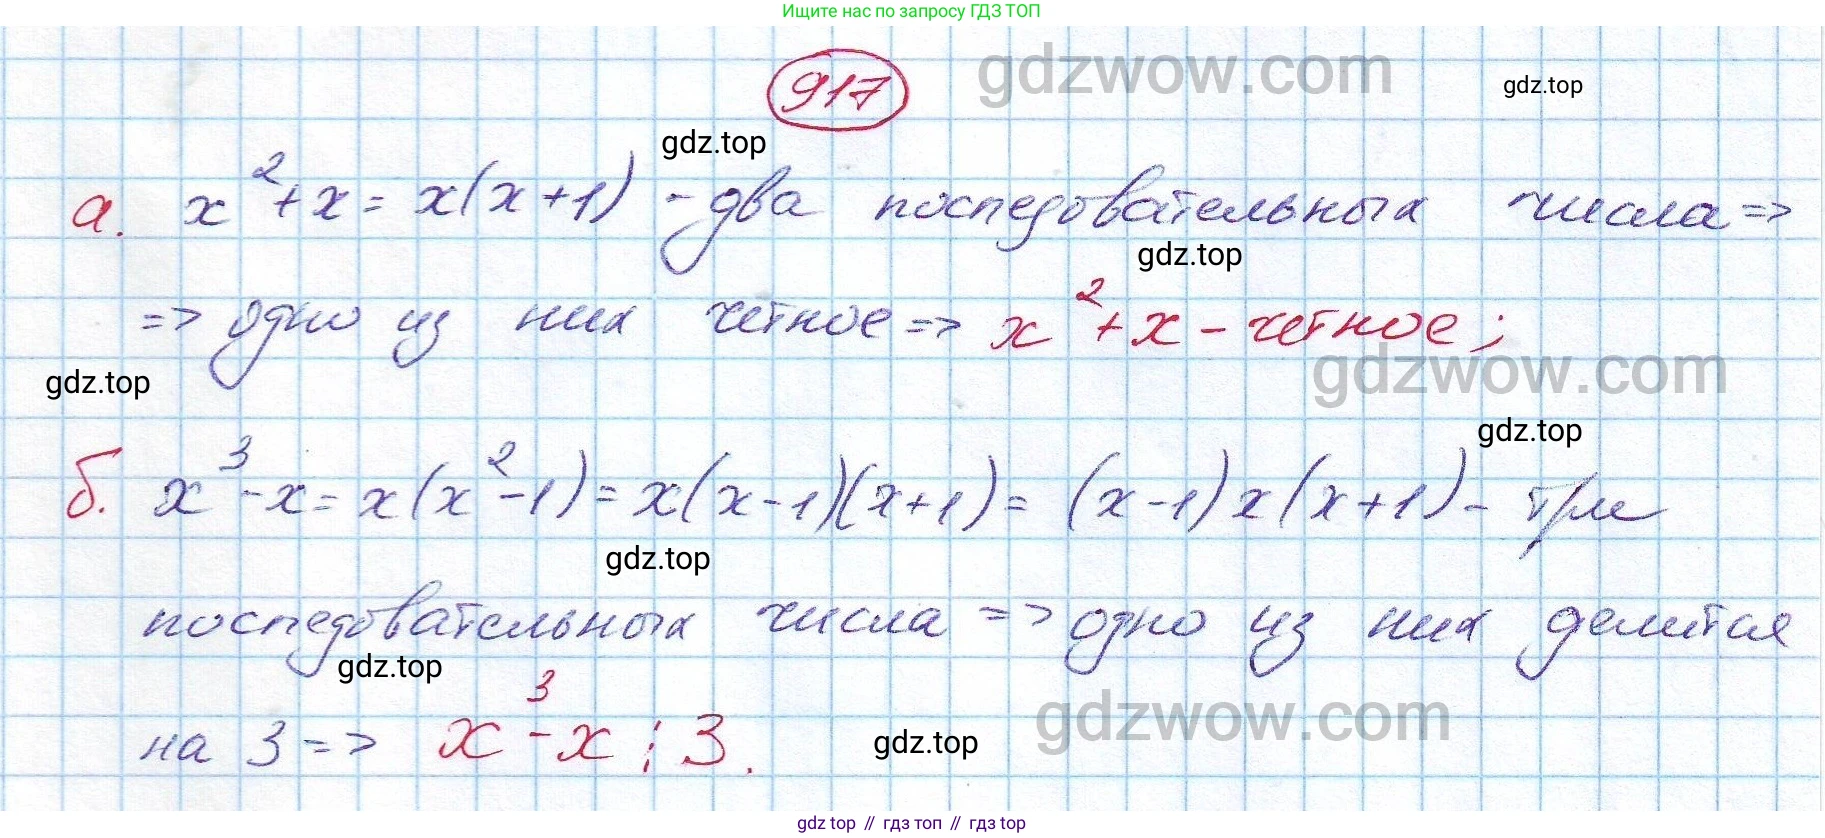 Ищите нас по запросу ГДЗ ТОП
917
gdzwow.com
gdz.top
gdz.top
а. x²+x = x(x+1) - два последовательных числа =>
gdz.top
=> одно из них четное => x²+x - четное;
gdz.top
gdzwow.com
gdz.top
б. x³-x = x(x²-1) = x(x-1)(x+1) = (x-1)x(x+1) - три
gdz.top
последовательных числа => одно из них делится
gdz.top
на 3 => x³-x ⋮ 3.
gdz.top
gdzwow.com
gdz top // гдз топ // gdz top